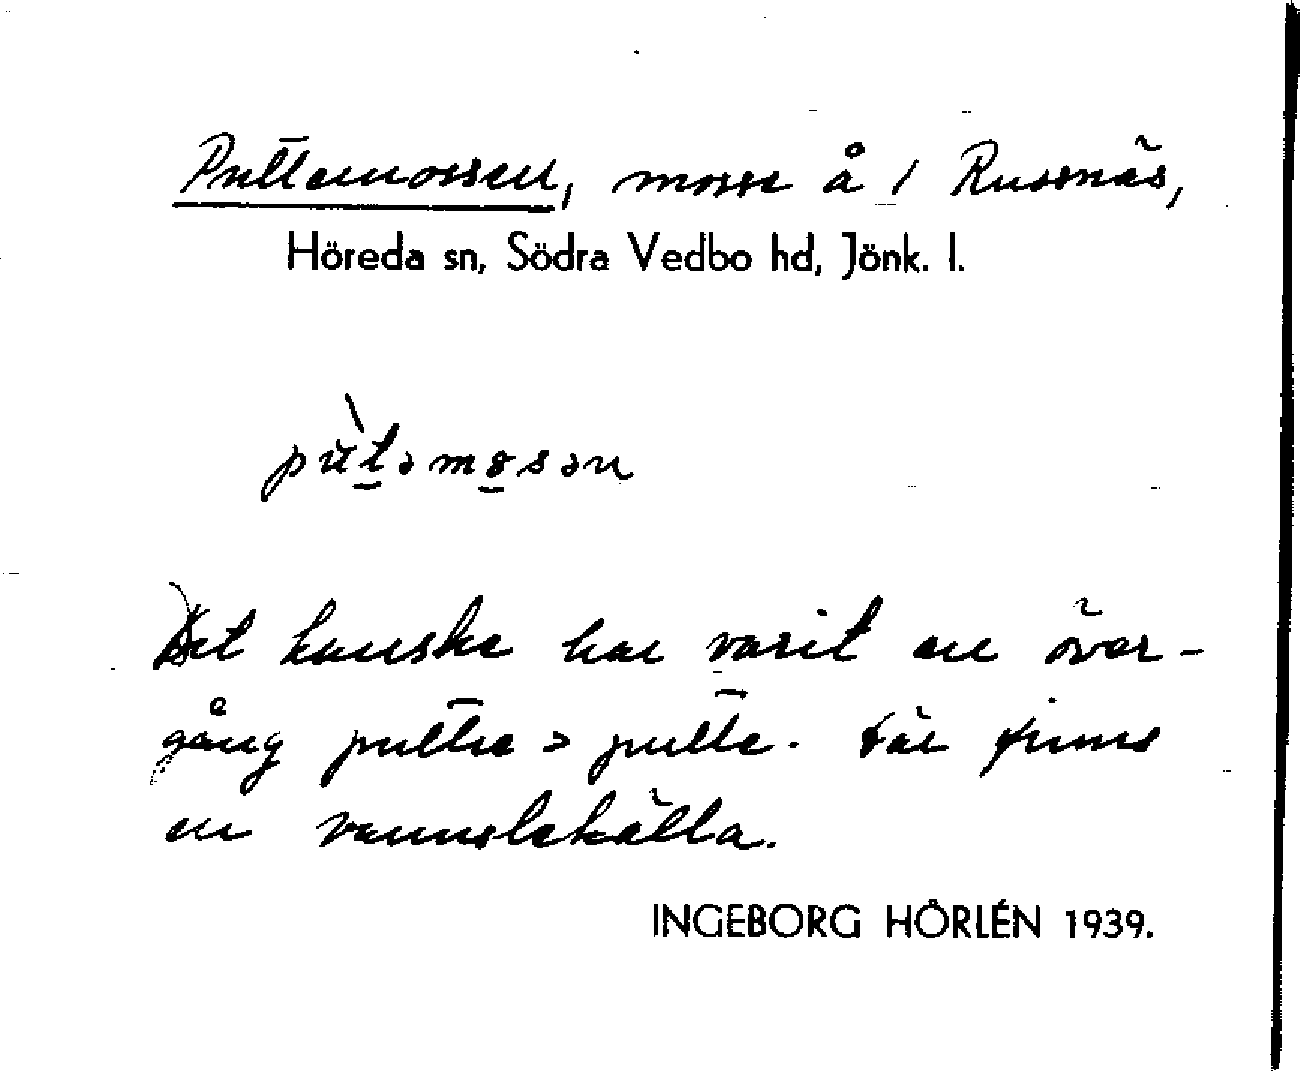 Puttemossen, mosse å 1 Russnäs,
Höreda sn, Södra Vedbo hd, Jönk. l.
pùtəmosən
Det kanske har varit en över-
gång putte > putte. Där finns
en vannslekälla.
INGEBORG HÖRLÉN 1939.